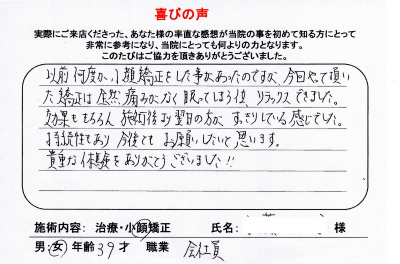 喜びの声
実際にご来店くださった、あなた様の率直な感想が当院の事を初めて知る方にとって
非常に参考になり、当院にとっても何よりの力となります。
このたびはご協力を頂きありがとうございました。
以前何度か小顔矯正をした事があったのですが、今回やって頂い
た矯正は全然痛みがなく眠ってしまう位、リラックスできました。
効果ももちろん施術後より翌日の方が、すっきりしている感じでした。
持続性もあり今後ともお願いしたいと思います。
貴重な体験をありがとうございました!!
施術内容: 治療・小顔矯正 氏名: 様
男・女 年齢 39 才 職業 会社員